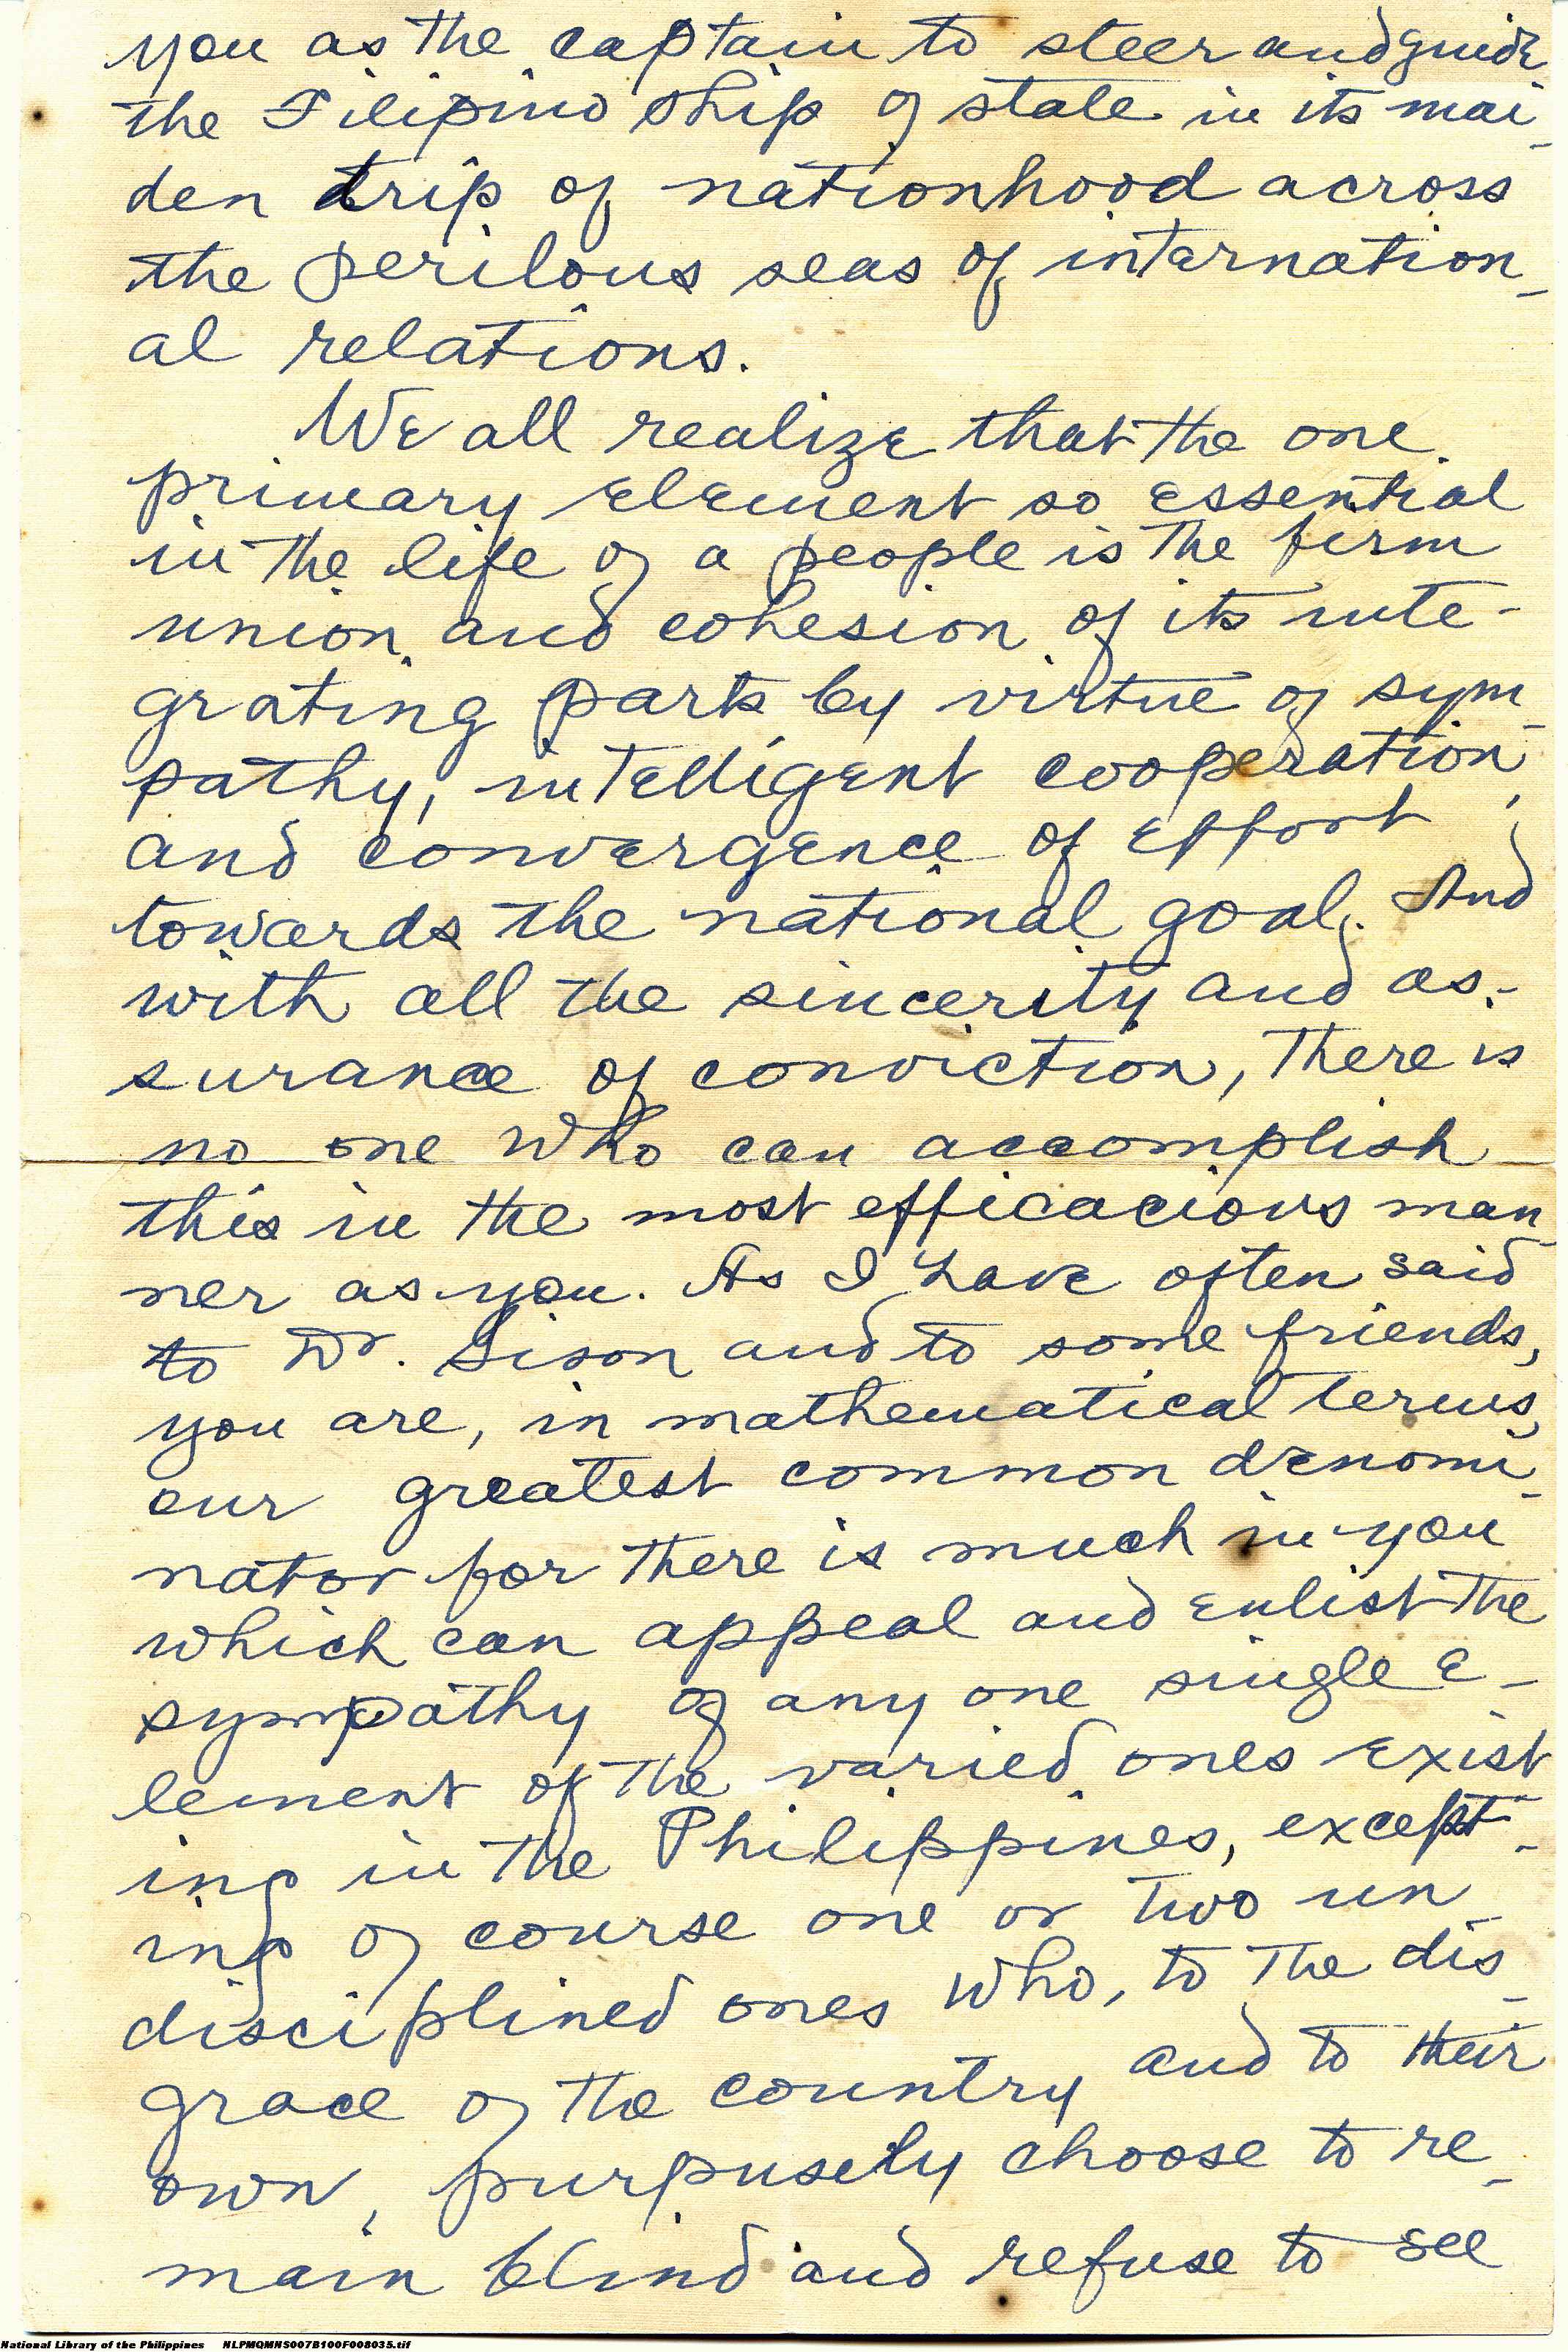 you as the captain to steer and guide
the Filipino ship of state in its mai-
den trip of nationhood across
the perilous seas of internation-
al relations.
We all realize that the one
primary element so essential
in the life of a people is the firm
union and cohesion of its inte-
grating parts by virtue of sym-
pathy, intelligent cooperation,
and convergence of effort
towards the national goal. And
with all the sincerity and as-
surance of conviction, there is
no one who can accomplish
this in the most efficacious man-
ner as you. As I have often said
to Dr. Sison and to some friends,
you are, in mathematical terms,
our greatest common denomi-
nator for there is much in you
which can appeal and enlist the
sympathy of any one single e-
lement of the varied ones exist
ing in the Philippines, except-
ing of course one or two un-
disciplined ones who, to the dis-
grace of the country and to their
own, purpusely choose to re-
main blind and refuse to see
National Library of the Philippines NLPMQMNS007B100F008035.tif